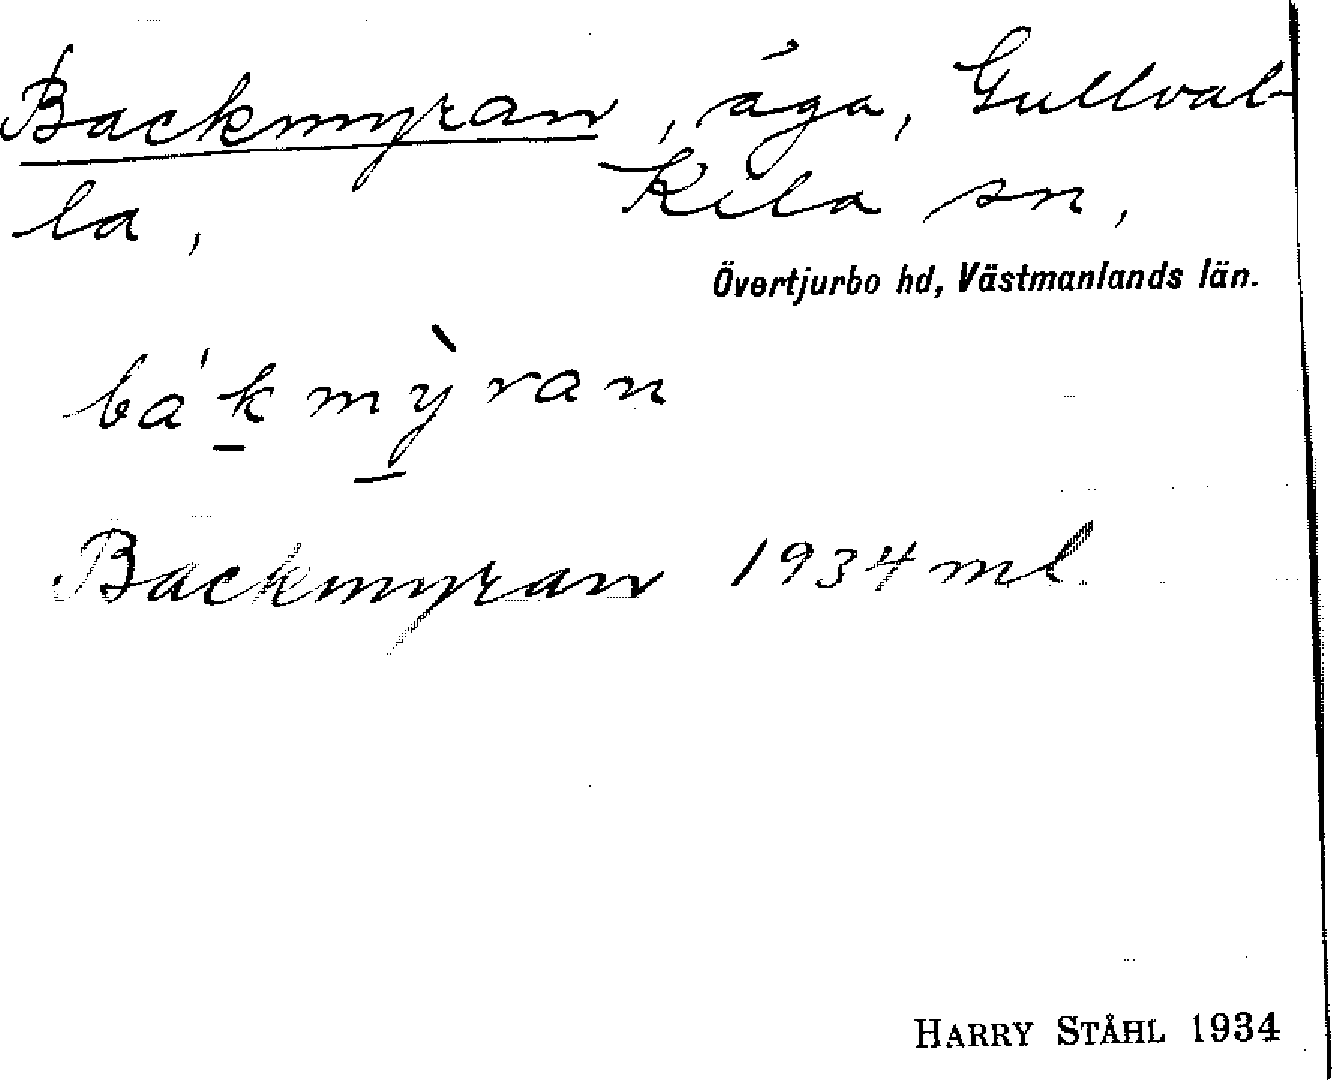 Backmyran, äga, Gullval-
la, Kila sn,
Övertjurbo hd, Västmanlands län.
bák̲mỳ̲ran
Backmyran 1934 ml.
HARRY STÅHL 1934